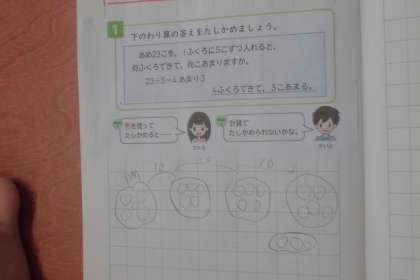 1
下のわり算の答えをたしかめましょう。
あめ23こを、1ふくろに5こずつ入れると、
何ふくろできて、何こあまりますか。
23÷5=4 あまり 3
4ふくろできて、3こあまる。
図を使って
たしかめると……
計算で
たしかめられないかな。